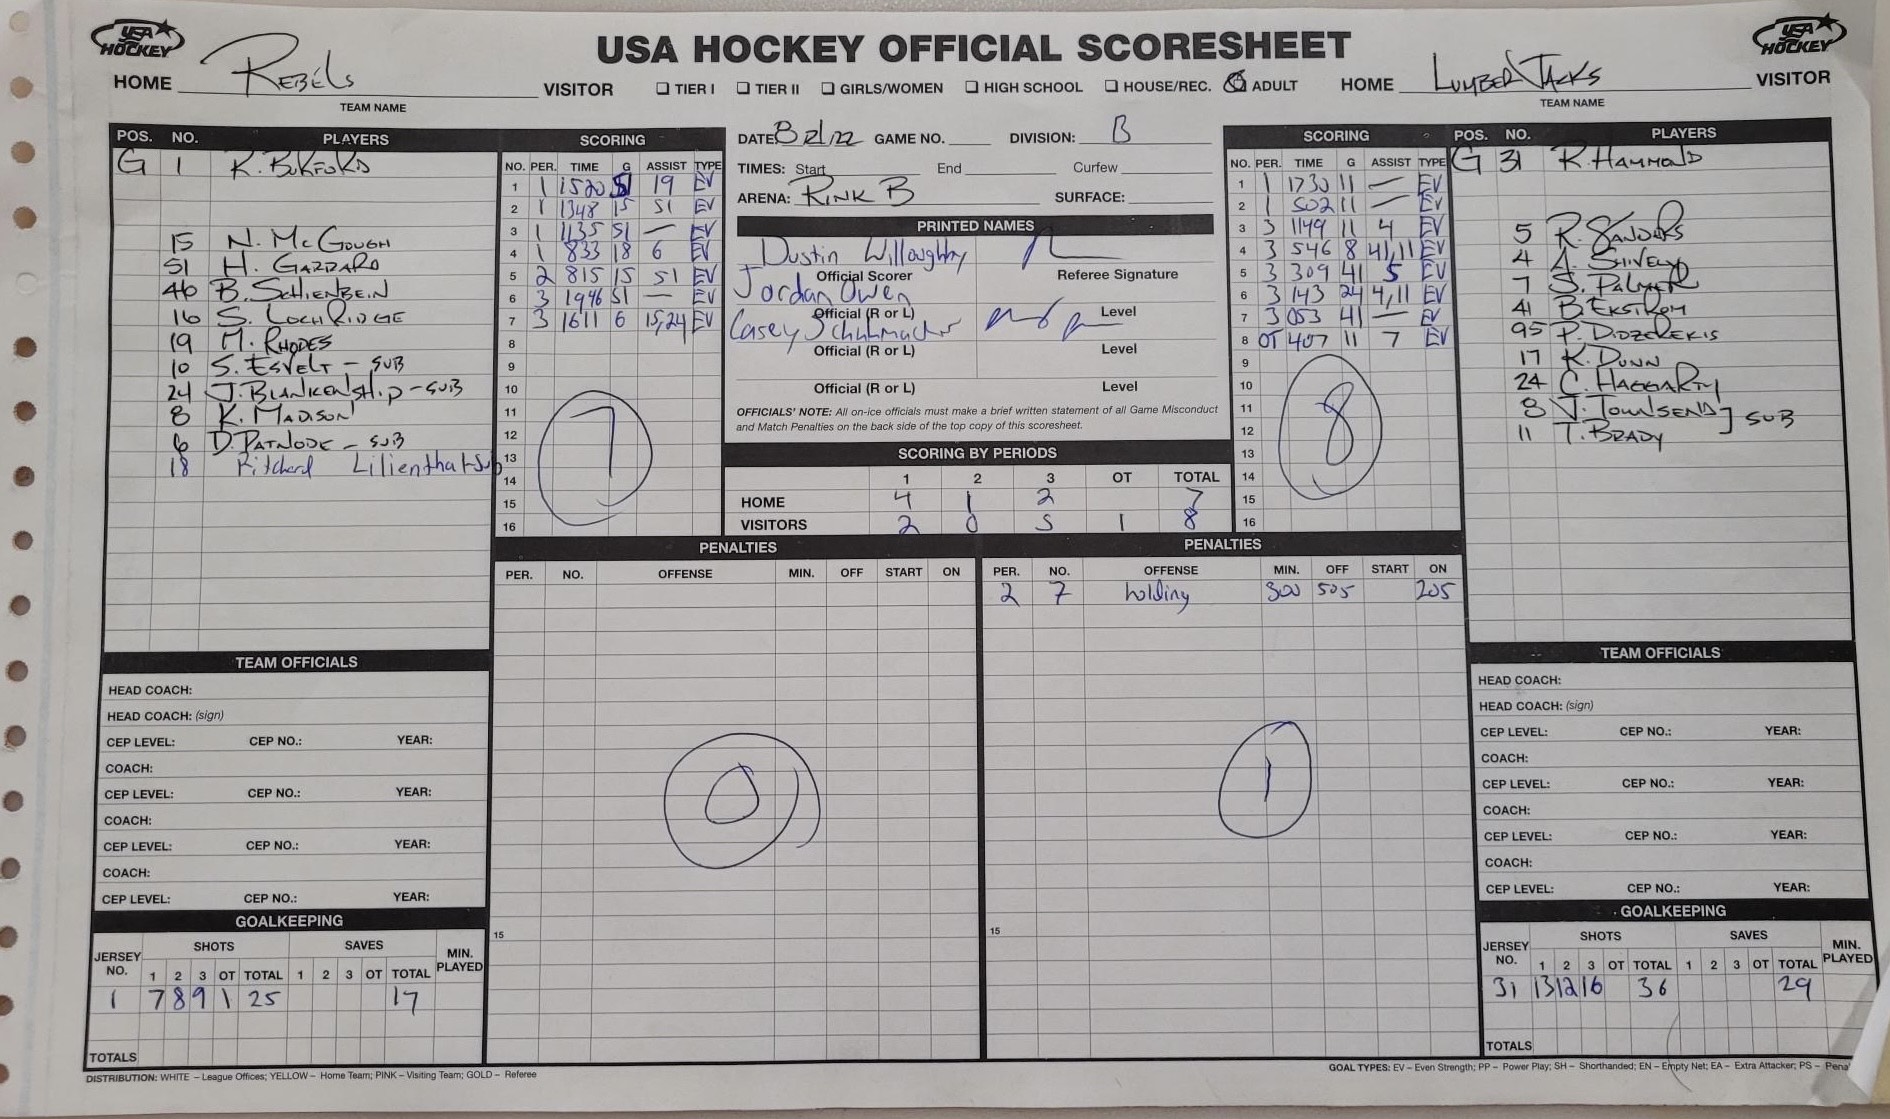 USA HOCKEY
USA HOCKEY OFFICIAL SCORESHEET
USA HOCKEY
HOME Rebels VISITOR
TEAM NAME
TIER I TIER II GIRLS/WOMEN HIGH SCHOOL HOUSE/REC. ADULT
HOME LumberJacks VISITOR
TEAM NAME
POS. NO. PLAYERS
G 1
15 N. McGough
51 H. Gazzard
46 B. Schienbein
16 S. Lochridge
19 M. Rhodes
10 S. Esvelt - sub
24 J. Blankenship - sub
8 K. Madison
6 D. Patnode - sub
18 Ritchard Lilienthal Sub
SCORING
NO. PER. TIME G ASSIST TYPE
1 1 1520 51 19 EV
2 1 1348 15 51 EV
3 1 1135 51 — EV
4 1 833 18 6 EV
5 2 815 15 51 EV
6 3 1946 51 — EV
7 3 1611 6 15,24 EV
8
9
10
11
12
13
14
15
16
7
DATE 8/21/22 GAME NO. DIVISION: B
TIMES: Start End Curfew
ARENA: Rink B SURFACE:
PRINTED NAMES
Dustin Willoughby
Official Scorer Referee Signature
Jordan Owen
Official (R or L) Level
Casey
Official (R or L) Level
Official (R or L) Level
OFFICIALS' NOTE: All on-ice officials must make a brief written statement of all Game Misconduct
and Match Penalties on the back side of the top copy of this scoresheet.
SCORING BY PERIODS
1 2 3 OT TOTAL
HOME 4 1 2 7
VISITORS 2 0 5 1 8
SCORING
NO. PER. TIME G ASSIST TYPE
1 1 1730 11 — EV
2 1 502 11 — EV
3 3 1149 11 4 EV
4 3 546 8 41,11 EV
5 3 309 41 5 EV
6 3 143 24 4,11 EV
7 3 053 41 — EV
8 OT 407 11 7 EV
9
10
11
12
13
14
15
16
8
POS. NO. PLAYERS
G 31 R. Hammond
5 R. Sanders
4 A. Shively
7 S. Palmer
41 B. Ekstrom
95 P. Didzerekis
17 K. Dunn
24 C. Haggarty
8 J. Townsend
11 T. Brady
] sub
PENALTIES
PER. NO. OFFENSE MIN. OFF START ON
15
0
PENALTIES
PER. NO. OFFENSE MIN. OFF START ON
2 7 holding 300 505 205
15
1
TEAM OFFICIALS
HEAD COACH:
HEAD COACH: (sign)
CEP LEVEL: CEP NO.: YEAR:
COACH:
CEP LEVEL: CEP NO.: YEAR:
COACH:
CEP LEVEL: CEP NO.: YEAR:
COACH:
CEP LEVEL: CEP NO.: YEAR:
GOALKEEPING
JERSEY NO. SHOTS SAVES MIN. PLAYED
1 2 3 OT TOTAL 1 2 3 OT TOTAL
1 7 8 9 1 25 17
TOTALS
TEAM OFFICIALS
HEAD COACH:
HEAD COACH: (sign)
CEP LEVEL: CEP NO.: YEAR:
COACH:
CEP LEVEL: CEP NO.: YEAR:
COACH:
CEP LEVEL: CEP NO.: YEAR:
COACH:
CEP LEVEL: CEP NO.: YEAR:
GOALKEEPING
JERSEY NO. SHOTS SAVES MIN. PLAYED
1 2 3 OT TOTAL 1 2 3 OT TOTAL
31 13 12 16 36 29
TOTALS
DISTRIBUTION: WHITE – League Offices; YELLOW – Home Team; PINK – Visiting Team; GOLD – Referee
GOAL TYPES: EV – Even Strength; PP – Power Play; SH – Shorthanded; EN – Empty Net; EA – Extra Attacker; PS – Pena